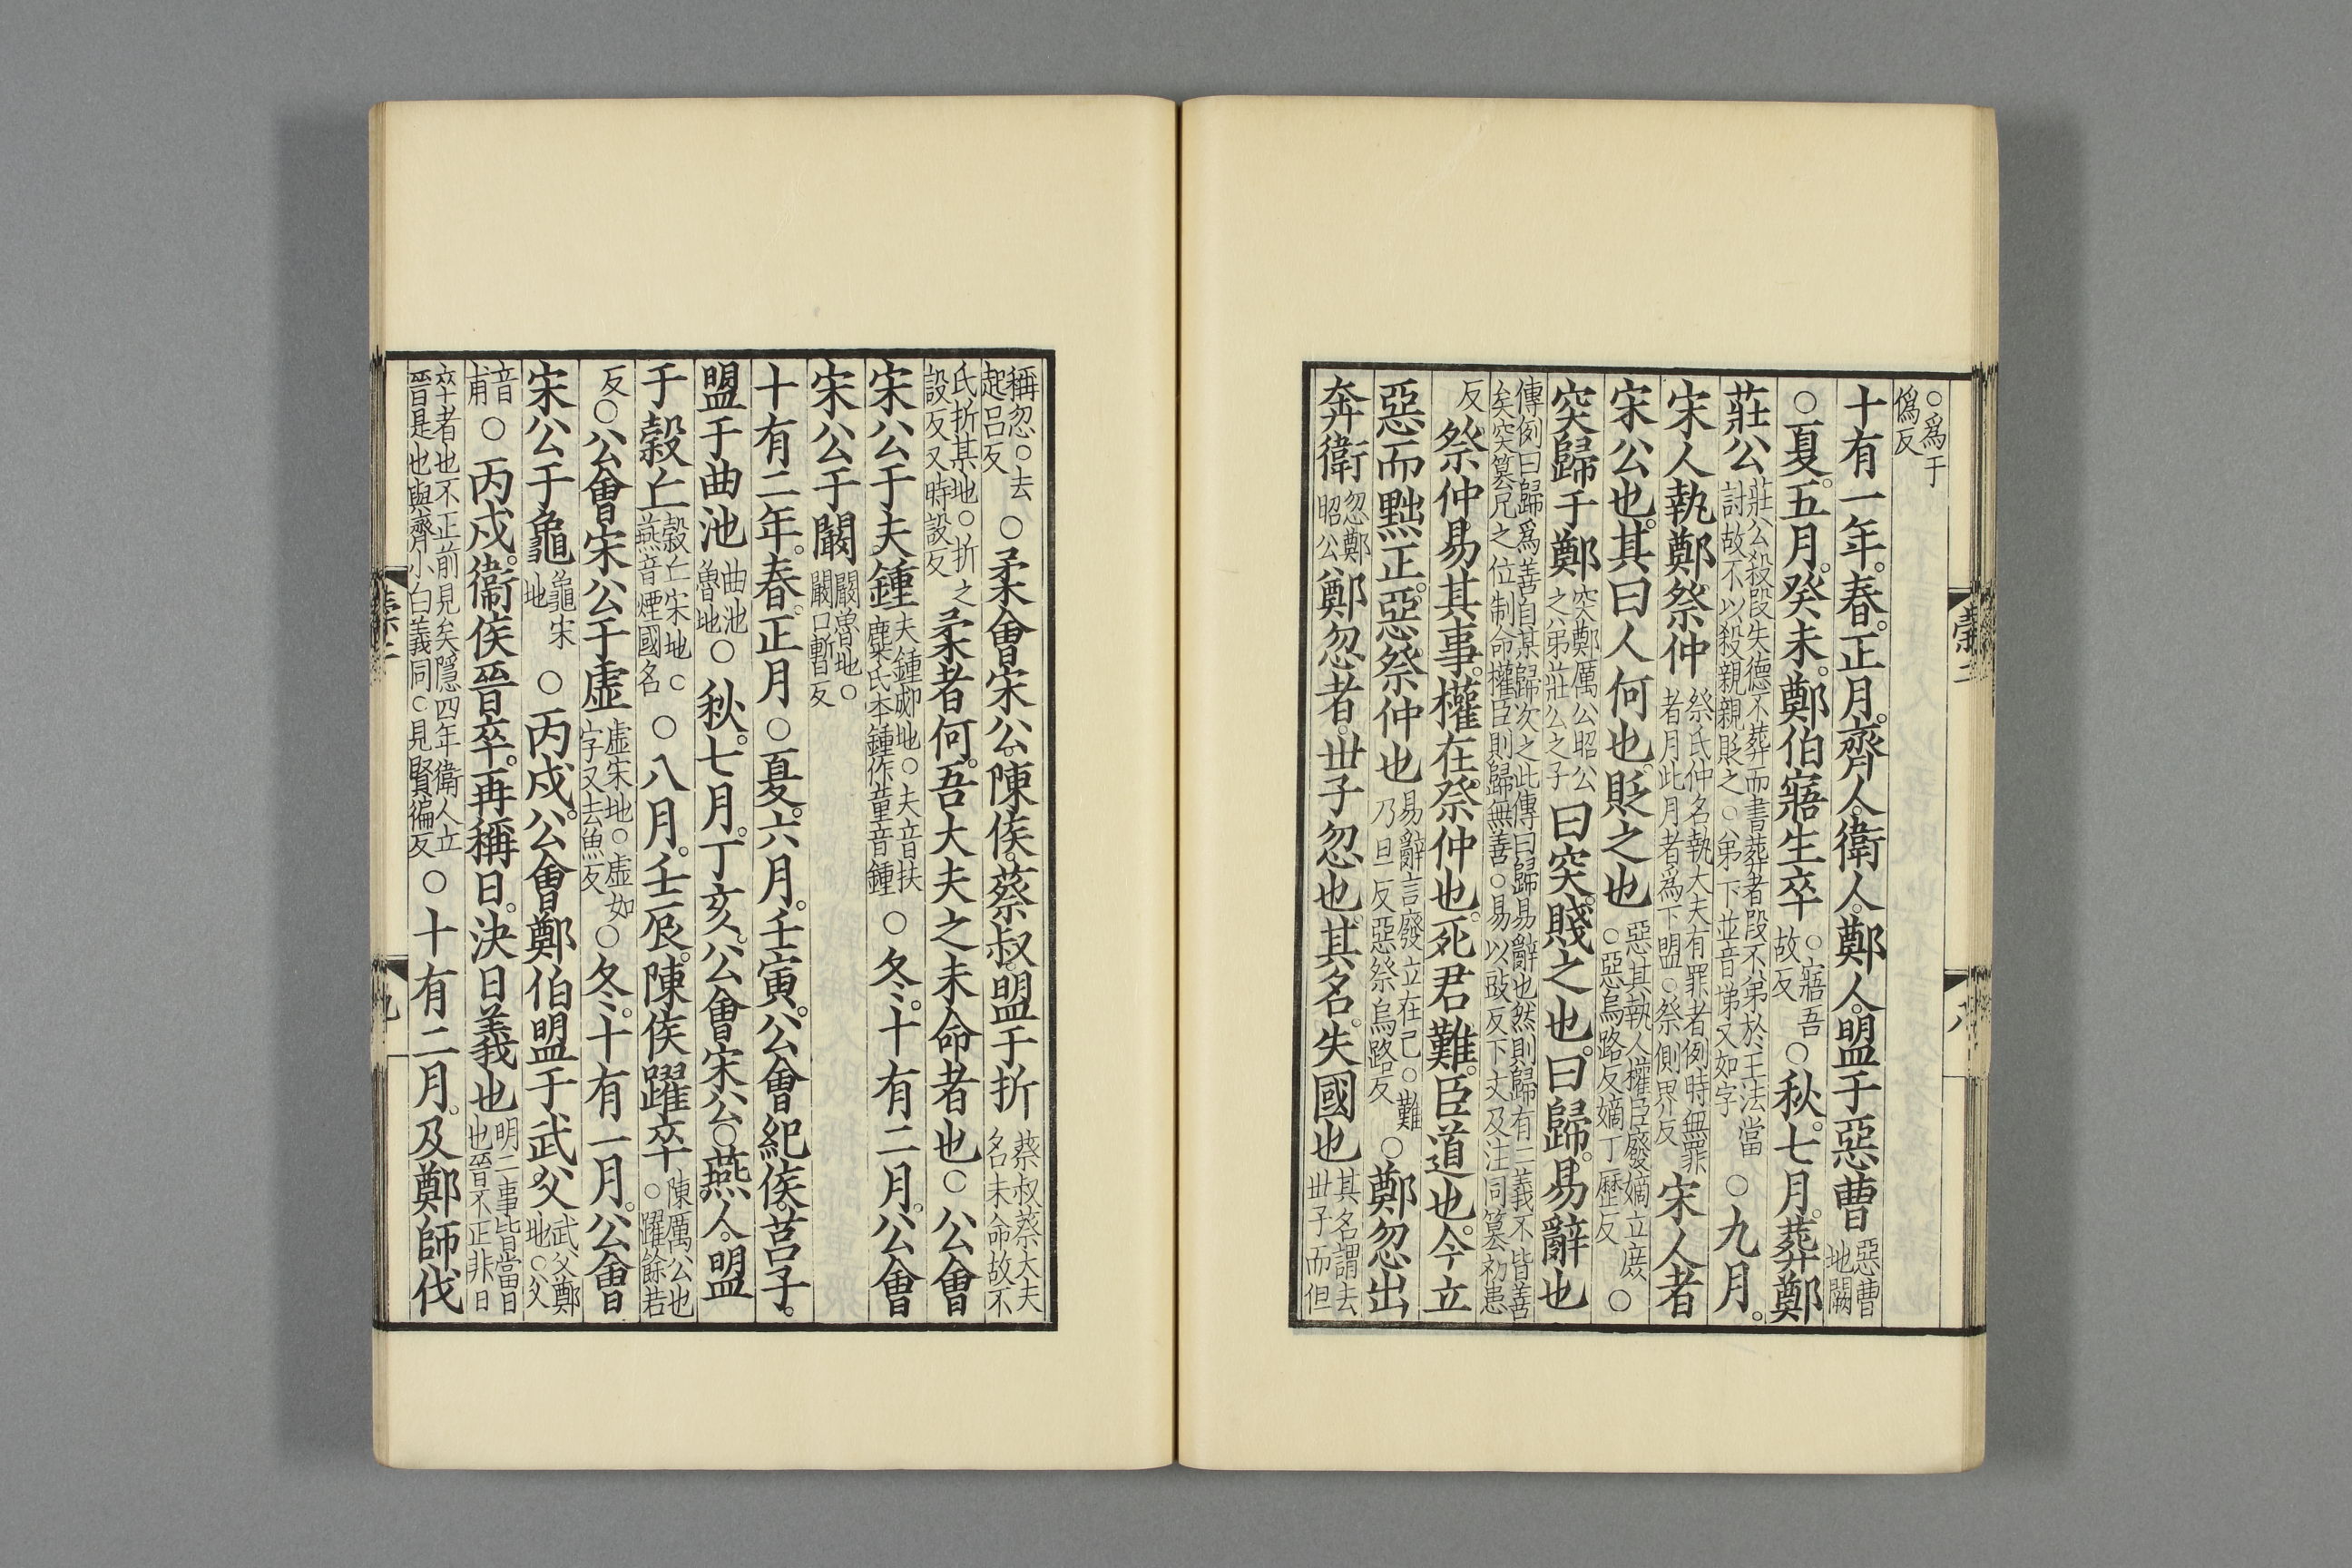 ○爲于僞反
十有一年春正月齊人衛人鄭人盟于惡曹惡曹地闕
○夏五月癸未鄭伯寤生卒○寤吾故反○秋七月葬鄭
莊公莊公殺段失德不葬而書葬者段不弟於王法當討故不以殺親親貶之○弟下並音悌又如字○九月
宋人執鄭祭仲祭氏仲名執大夫有罪者例時無罪者月此月者爲下盟○祭側界反宋人者
宋公也其曰人何也貶之也惡其執人權臣廢嫡立庶○惡烏路反嫡丁歷反○
突歸于鄭突鄭厲公昭公之弟莊公之子曰突賤之也曰歸易辭也
傳例曰歸爲善自某歸次之此傳曰歸易辭也然則歸有二義不皆善矣突篡兄之位制命權臣則歸無善○易以豉反下文及注同篡初患
反祭仲易其事權在祭仲也死君難臣道也今立
惡而黜正惡祭仲也易辭言廢立在己○難乃旦反惡祭烏路反○鄭忽出
奔衛忽鄭昭公鄭忽者世子忽也其名失國也其名謂去世子而但
稱忽○去起呂反○柔會宋公陳侯蔡叔盟于折蔡叔蔡大夫名未命故不
氏折某地○折之設反又時設反柔者何吾大夫之未命者也○公會
宋公于夫鍾夫鍾郕地○夫音扶麋氏本鍾作童音鍾○冬十有二月公會
宋公于闞闞魯地○闞口暫反
十有二年春正月○夏六月壬寅公會紀侯莒子
盟于曲池曲池魯地○秋七月丁亥公會宋公○燕人盟
于穀丘穀丘宋地○燕音煙國名○八月壬辰陳侯躍卒陳厲公也○躍餘若
反○公會宋公于虛虛宋地○虛如字又去魚反○冬十有一月公會
宋公于龜龜宋地○丙戌公會鄭伯盟于武父武父鄭地○父
音甫○丙戌衛侯晉卒再稱日決日義也明二事皆當日也晉不正非日
卒者也不正前見矣隱四年衛人立晉是也與齊小白義同○見賢徧反○十有二月及鄭師伐